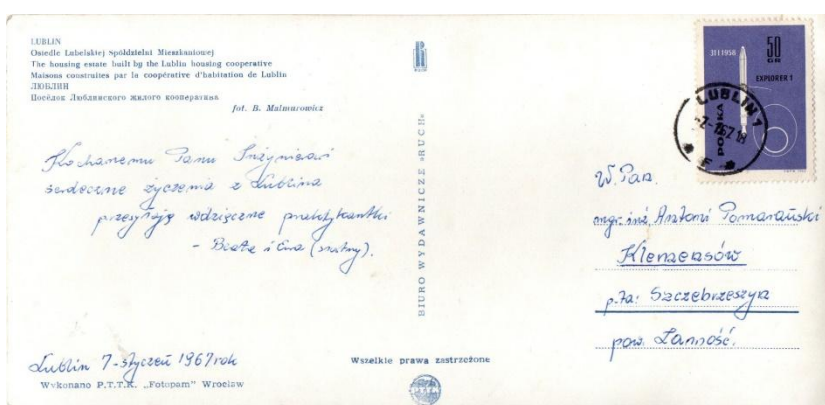 LUBLIN
Osiedle Lubelskiej Spółdzielni Mieszkaniowej
The housing estate built by the Lublin housing cooperative
Maisons construites par la coopérative d'habitation de Lublin
ЛЮБЛИН
Посёлок Люблинского жилого кооператива
fot. B. Malmurowicz
Kochanemu Panu Inżynierowi
serdeczne życzenia z Lublina
przesyłają wdzięczne praktykantki
- Beata i Ewa
Lublin 7-styczeń 1967 rok
Wykonano P.T.T.K. „Fotopam” Wrocław
BIURO WYDAWNICZE «RUCH»
Wszelkie prawa zastrzeżone
31 I 1958
50
GR
EXPLORER 1
POLSKA
LUBLIN 1
W. Pan.
mgr. inż. Antoni Pomarański
Klemensów
p-ta: Szczebrzeszyn
pow. Zamość.